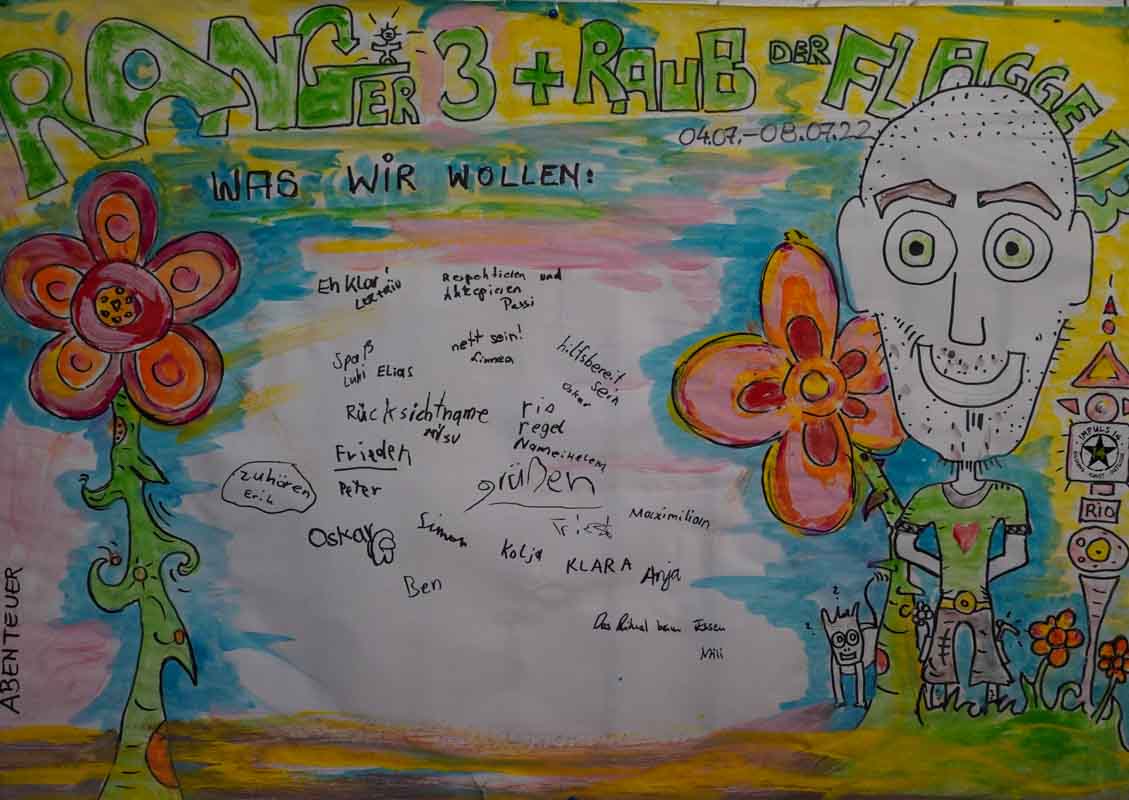 RANGER 3 + RAUB DER FLAGGE 13
04.07.-08.07.22
WAS WIR WOLLEN:
Eh Klar!
Respektieren und
Akzeptieren
Passi
nett sein!
Linnea
hilfsbereit
sein
Oskar
Spaß
Luki ELIAS
Rücksichtname
rio
regel
Frieden
Peter
zuhören
Erik
grüßen
Oskar
Simon
Maximilian
Kolja
KLARA
Anja
Ben
Das Ritual beim Essen
Mili
ABENTEUER
IMPULS
RIO